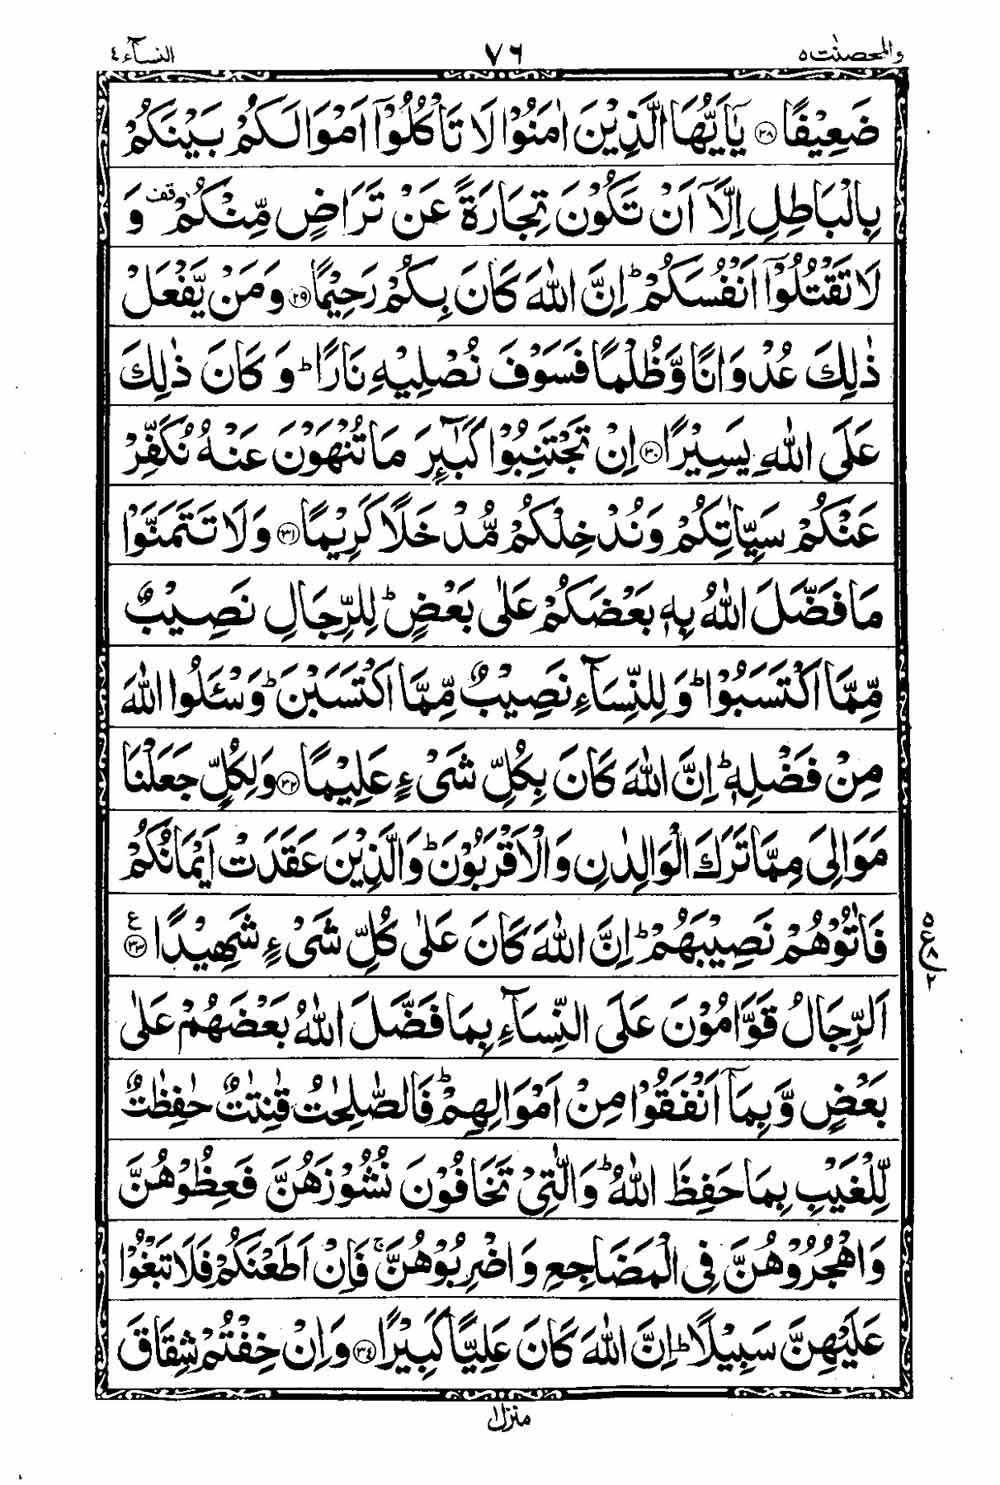 والمحصنت ٥ ٧٦ النسآء ٤
ضَعِيْفًا ﴿٢٨﴾ يٰۤاَيُّهَا الَّذِيْنَ اٰمَنُوْا لَا تَاْكُلُوْۤا اَمْوَالَكُمْ بَيْنَكُمْ
بِالْبَاطِلِ اِلَّاۤ اَنْ تَكُوْنَ تِجَارَةً عَنْ تَرَاضٍ مِّنْكُمْ قف وَ
لَا تَقْتُلُوْۤا اَنْفُسَكُمْ ؕ اِنَّ اللّٰهَ كَانَ بِكُمْ رَحِيْمًا ﴿٢٩﴾ وَمَنْ يَّفْعَلْ
ذٰلِكَ عُدْوَانًا وَّظُلْمًا فَسَوْفَ نُصْلِيْهِ نَارًا ؕ وَكَانَ ذٰلِكَ
عَلَى اللّٰهِ يَسِيْرًا ﴿٣٠﴾ اِنْ تَجْتَنِبُوْا كَبَآئِرَ مَا تُنْهَوْنَ عَنْهُ نُكَفِّرْ
عَنْكُمْ سَيِّاٰتِكُمْ وَنُدْخِلْكُمْ مُّدْخَلًا كَرِيْمًا ﴿٣١﴾ وَلَا تَتَمَنَّوْا
مَا فَضَّلَ اللّٰهُ بِهٖ بَعْضَكُمْ عَلٰى بَعْضٍ ؕ لِلرِّجَالِ نَصِيْبٌ
مِّمَّا اكْتَسَبُوْا ؕ وَلِلنِّسَآءِ نَصِيْبٌ مِّمَّا اكْتَسَبْنَ ؕ وَسْئَلُوا اللّٰهَ
مِنْ فَضْلِهٖ ؕ اِنَّ اللّٰهَ كَانَ بِكُلِّ شَىْءٍ عَلِيْمًا ﴿٣٢﴾ وَلِكُلٍّ جَعَلْنَا
مَوَالِىَ مِمَّا تَرَكَ الْوَالِدٰنِ وَالْاَقْرَبُوْنَ ؕ وَالَّذِيْنَ عَقَدَتْ اَيْمَانُكُمْ
فَاٰتُوْهُمْ نَصِيْبَهُمْ ؕ اِنَّ اللّٰهَ كَانَ عَلٰى كُلِّ شَىْءٍ شَهِيْدًا ﴿٣٣﴾ ع
اَلرِّجَالُ قَوَّامُوْنَ عَلَى النِّسَآءِ بِمَا فَضَّلَ اللّٰهُ بَعْضَهُمْ عَلٰى
بَعْضٍ وَّبِمَاۤ اَنْفَقُوْا مِنْ اَمْوَالِهِمْ ؕ فَالصّٰلِحٰتُ قٰنِتٰتٌ حٰفِظٰتٌ
لِّلْغَيْبِ بِمَا حَفِظَ اللّٰهُ ؕ وَالّٰتِىْ تَخَافُوْنَ نُشُوْزَهُنَّ فَعِظُوْهُنَّ
وَاهْجُرُوْهُنَّ فِى الْمَضَاجِعِ وَاضْرِبُوْهُنَّ ۚ فَاِنْ اَطَعْنَكُمْ فَلَا تَبْغُوْا
عَلَيْهِنَّ سَبِيْلًا ؕ اِنَّ اللّٰهَ كَانَ عَلِيًّا كَبِيْرًا ﴿٣٤﴾ وَاِنْ خِفْتُمْ شِقَاقَ
منزل ١